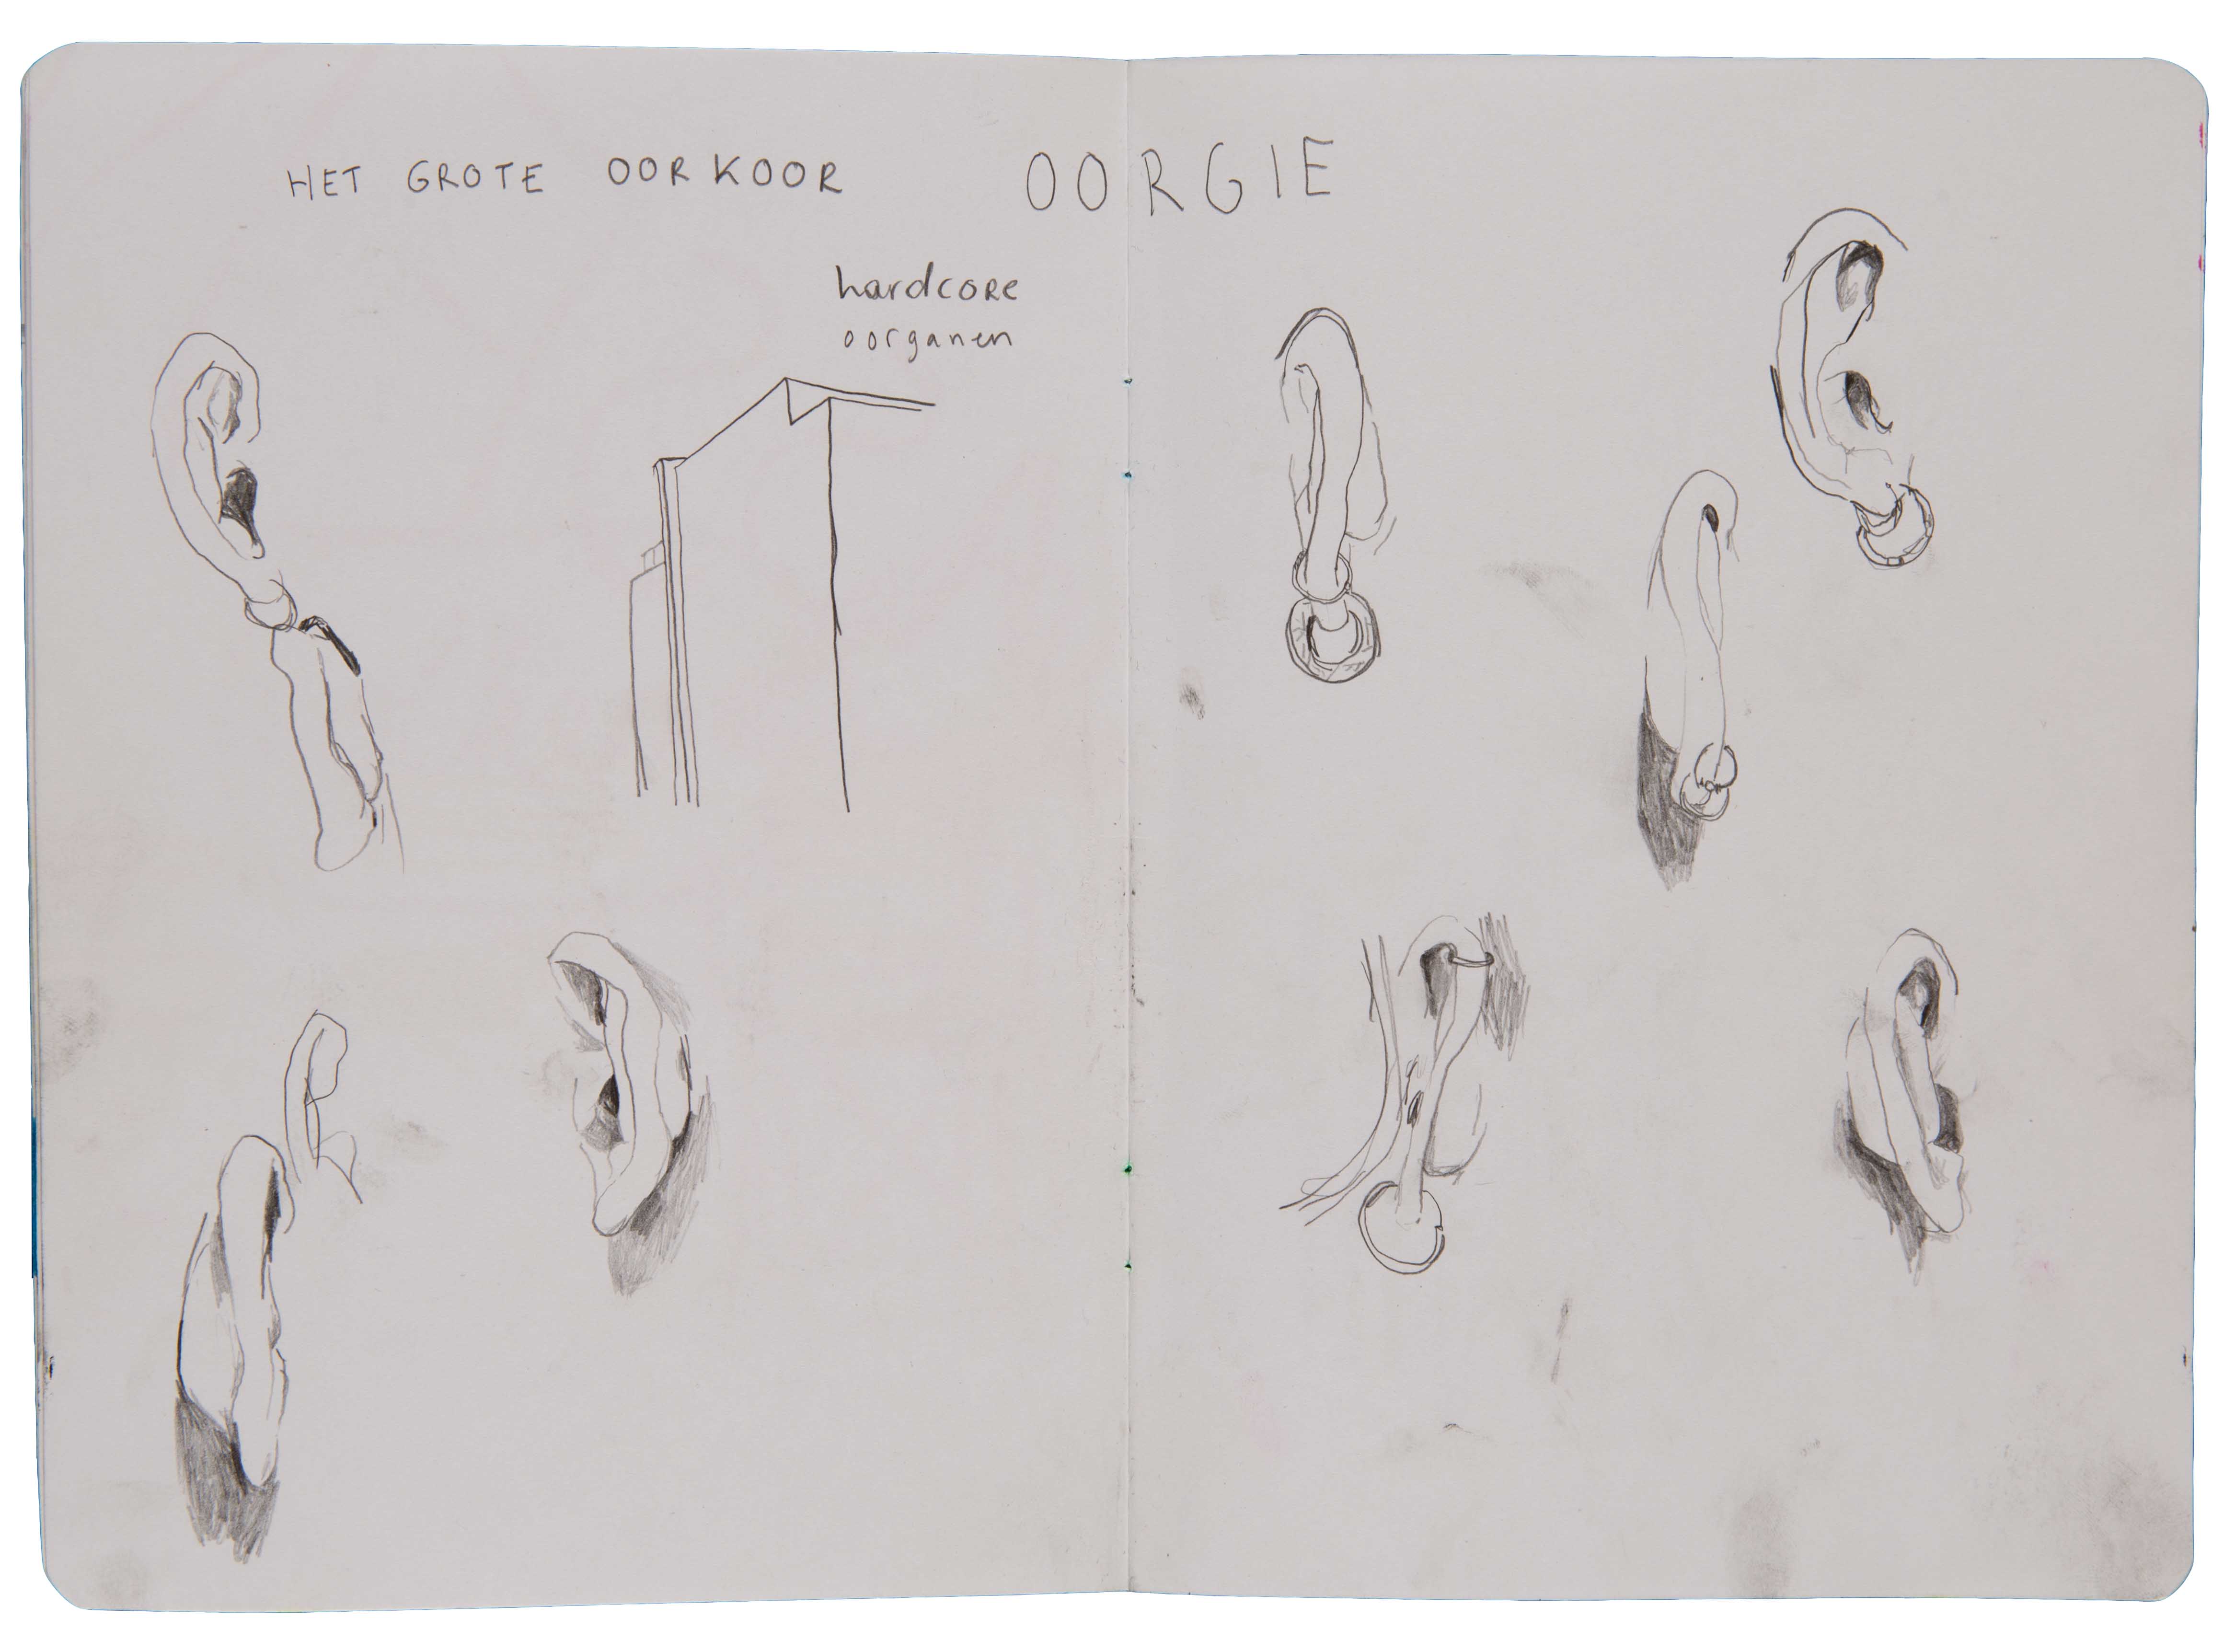 HET GROTE OORKOOR
OORGIE
hardcore
oorganen